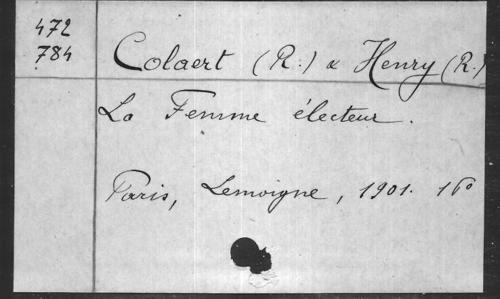 472
784
Colaert (R.) & Henry (R.)
La Femme électeur.
Paris, Lemoigne, 1901. 16º